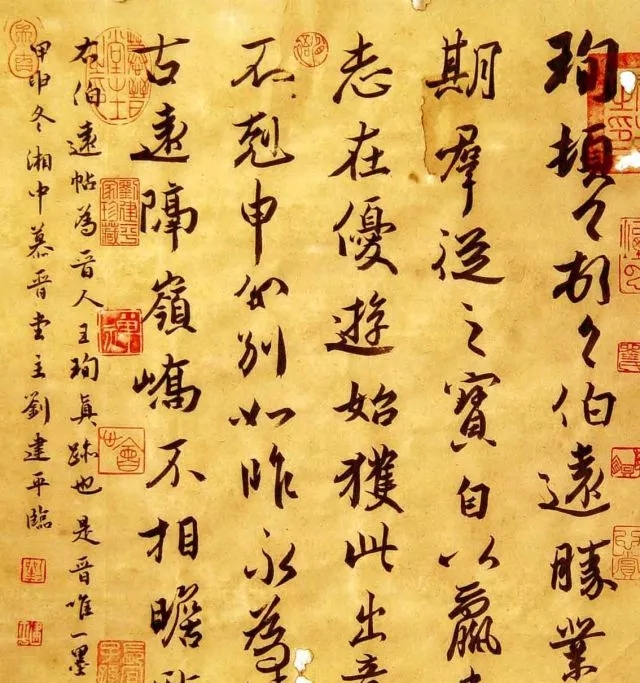 珣頓々頓々伯遠勝業
期羣從之寶自以羸
志在優遊始獲此出意
不剋申分別如昨永為
古遠隔嶺嶠不相瞻
右伯遠帖為晉人王珣真跡也是晉唯一墨
甲申冬湘中慕晉堂主劉建平臨
劉建平家珍藏